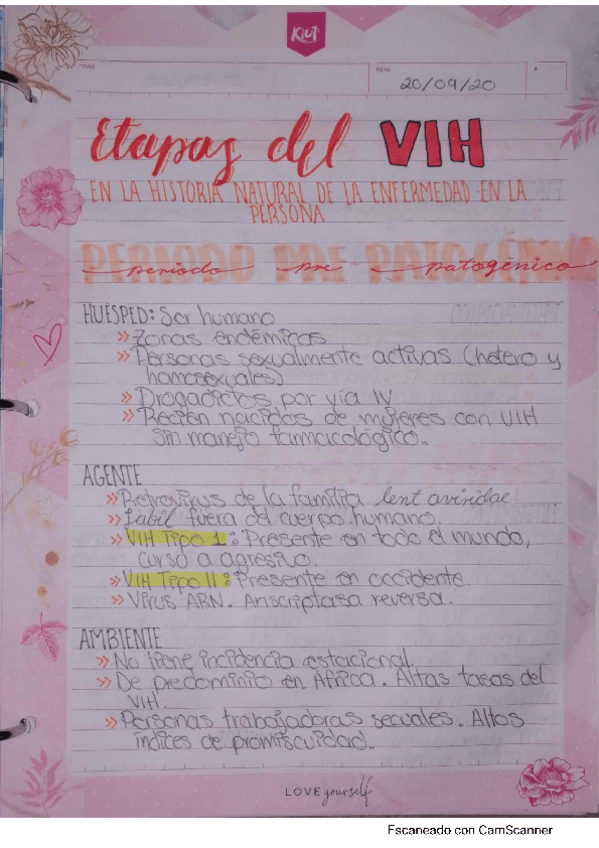 KIUT
FECHA
20/09/20
Etapas del VIH
EN LA HISTORIA NATURAL DE LA ENFERMEDAD EN LA
PERSONA
PERIODO PRE PATOGÉNICO
periodo pre patogénico
HUÉSPED: Ser humano
» Zonas endémicas
» Personas sexualmente activas (hetero y
homosexuales)
» Drogadictos por vía IV
» Recién nacidos de mujeres con VIH
sin manejo farmacológico.
AGENTE
» Retrovirus de la familia lent aviridae
» Labil fuera del cuerpo humano.
» VIH Tipo 1: Presente en todo el mundo,
curso a agresivo.
» VIH Tipo II: Presente en occidente.
» Virus ARN. Anscriptasa reversa.
AMBIENTE
» No tiene incidencia estacional.
» De predominio en África. Altas tasas del
VIH.
» Personas trabajadoras sexuales. Altos
índices de promiscuidad.
LOVE yourself
Escaneado con CamScanner